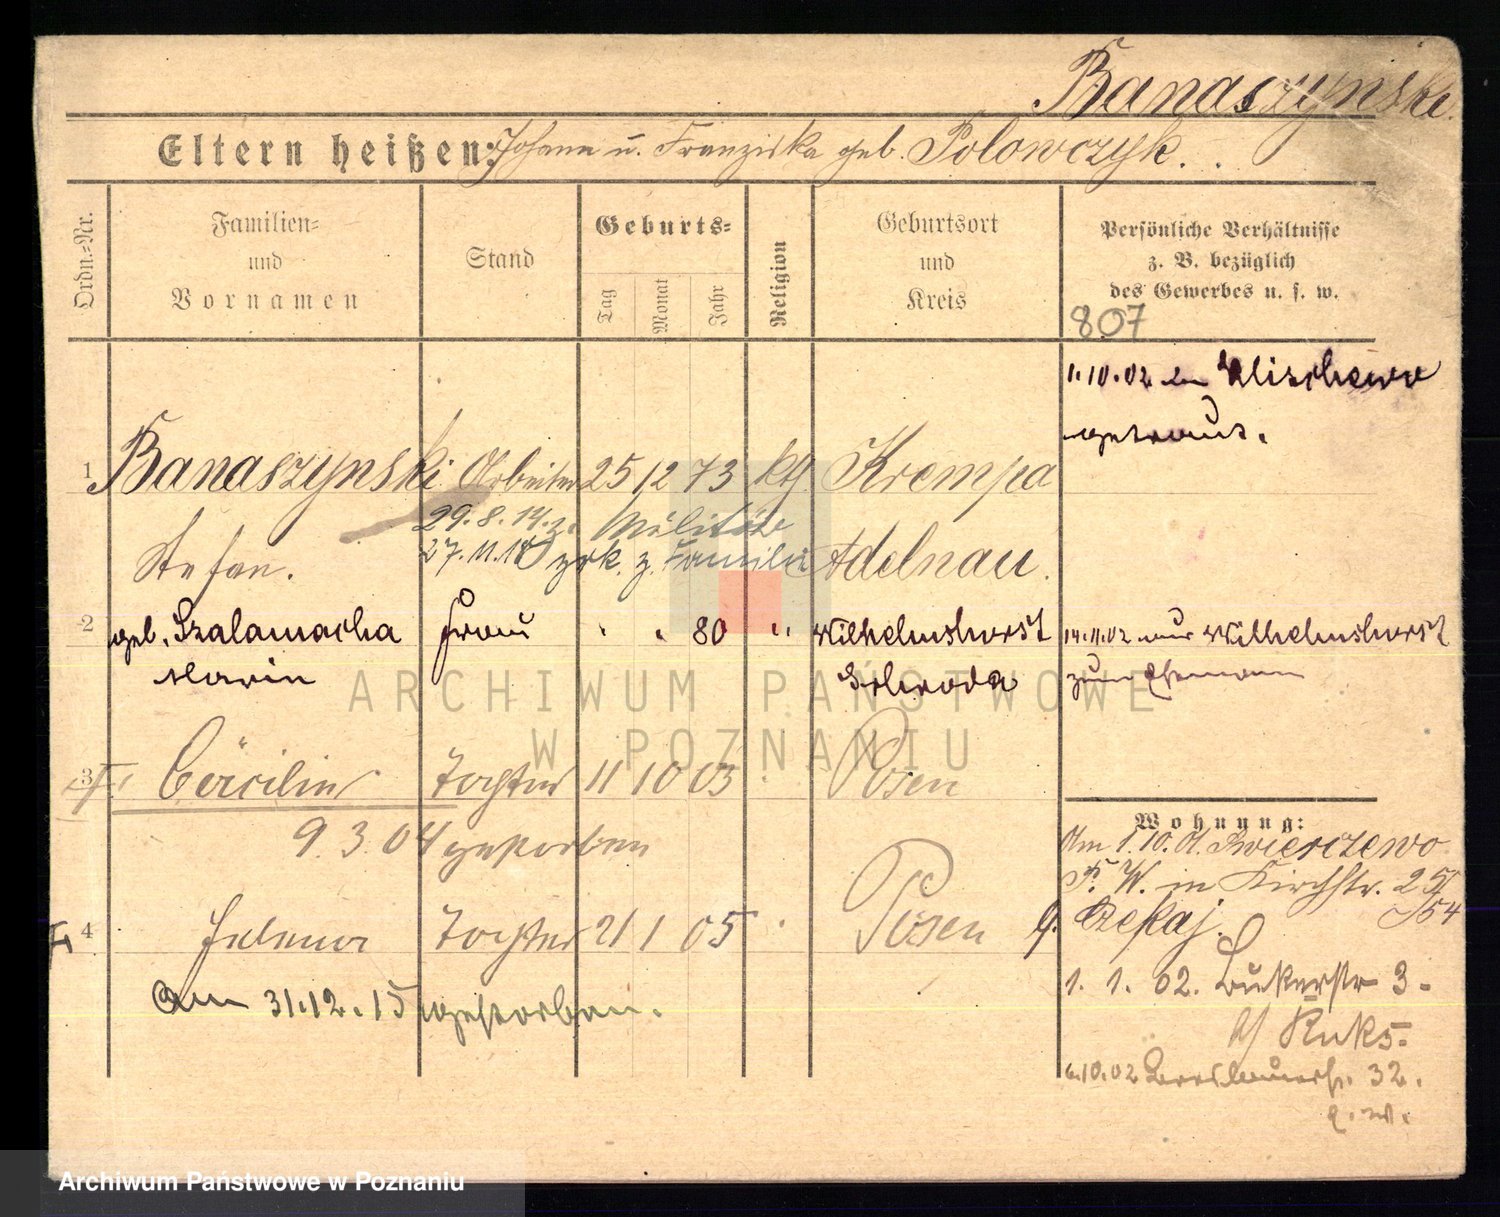 Banaszynski.
Eltern heißen: Johann u. Franziska geb. Polowczyk.
Ordn.-Nr.
Familien-
und
Vornamen
Stand
Geburts-
Tag
Monat
Jahr
Religion
Geburtsort
und
Kreis
Persönliche Verhältnisse
z. B. bezüglich
des Gewerbes u. s. w.
807
1.10.02 in
getraut.
1 Banaszynski Arbeiter 25 12 73 kth. Krempa
29.8.14. z. Militär
Stefan. 27.11.18 zrk. z. Familie Adelnau.
2 geb. Szalamacha Frau " " 80 " Wilhelmshorst 14.11.02 aus Wilhelmshorst
Marie Schroda zum Ehemann
3 Cäcilie Tochter 11 10 03 Posen
9.3.04 gestorben
Wohnung:
Am 1.10.01. Swierczewo
P. W. in Kirchstr. 25
4 Helena Tochter 21 1 05 Posen
b. Czekaj. 54
1. 1. 02. Bukerstr 3.
Am 31.12.15 gestorben.
b/ Kuks.
6.10.02 Breslauerstr. 32.
ARCHIWUM PAŃSTWOWE
W POZNANIU
Archiwum Państwowe w Poznaniu